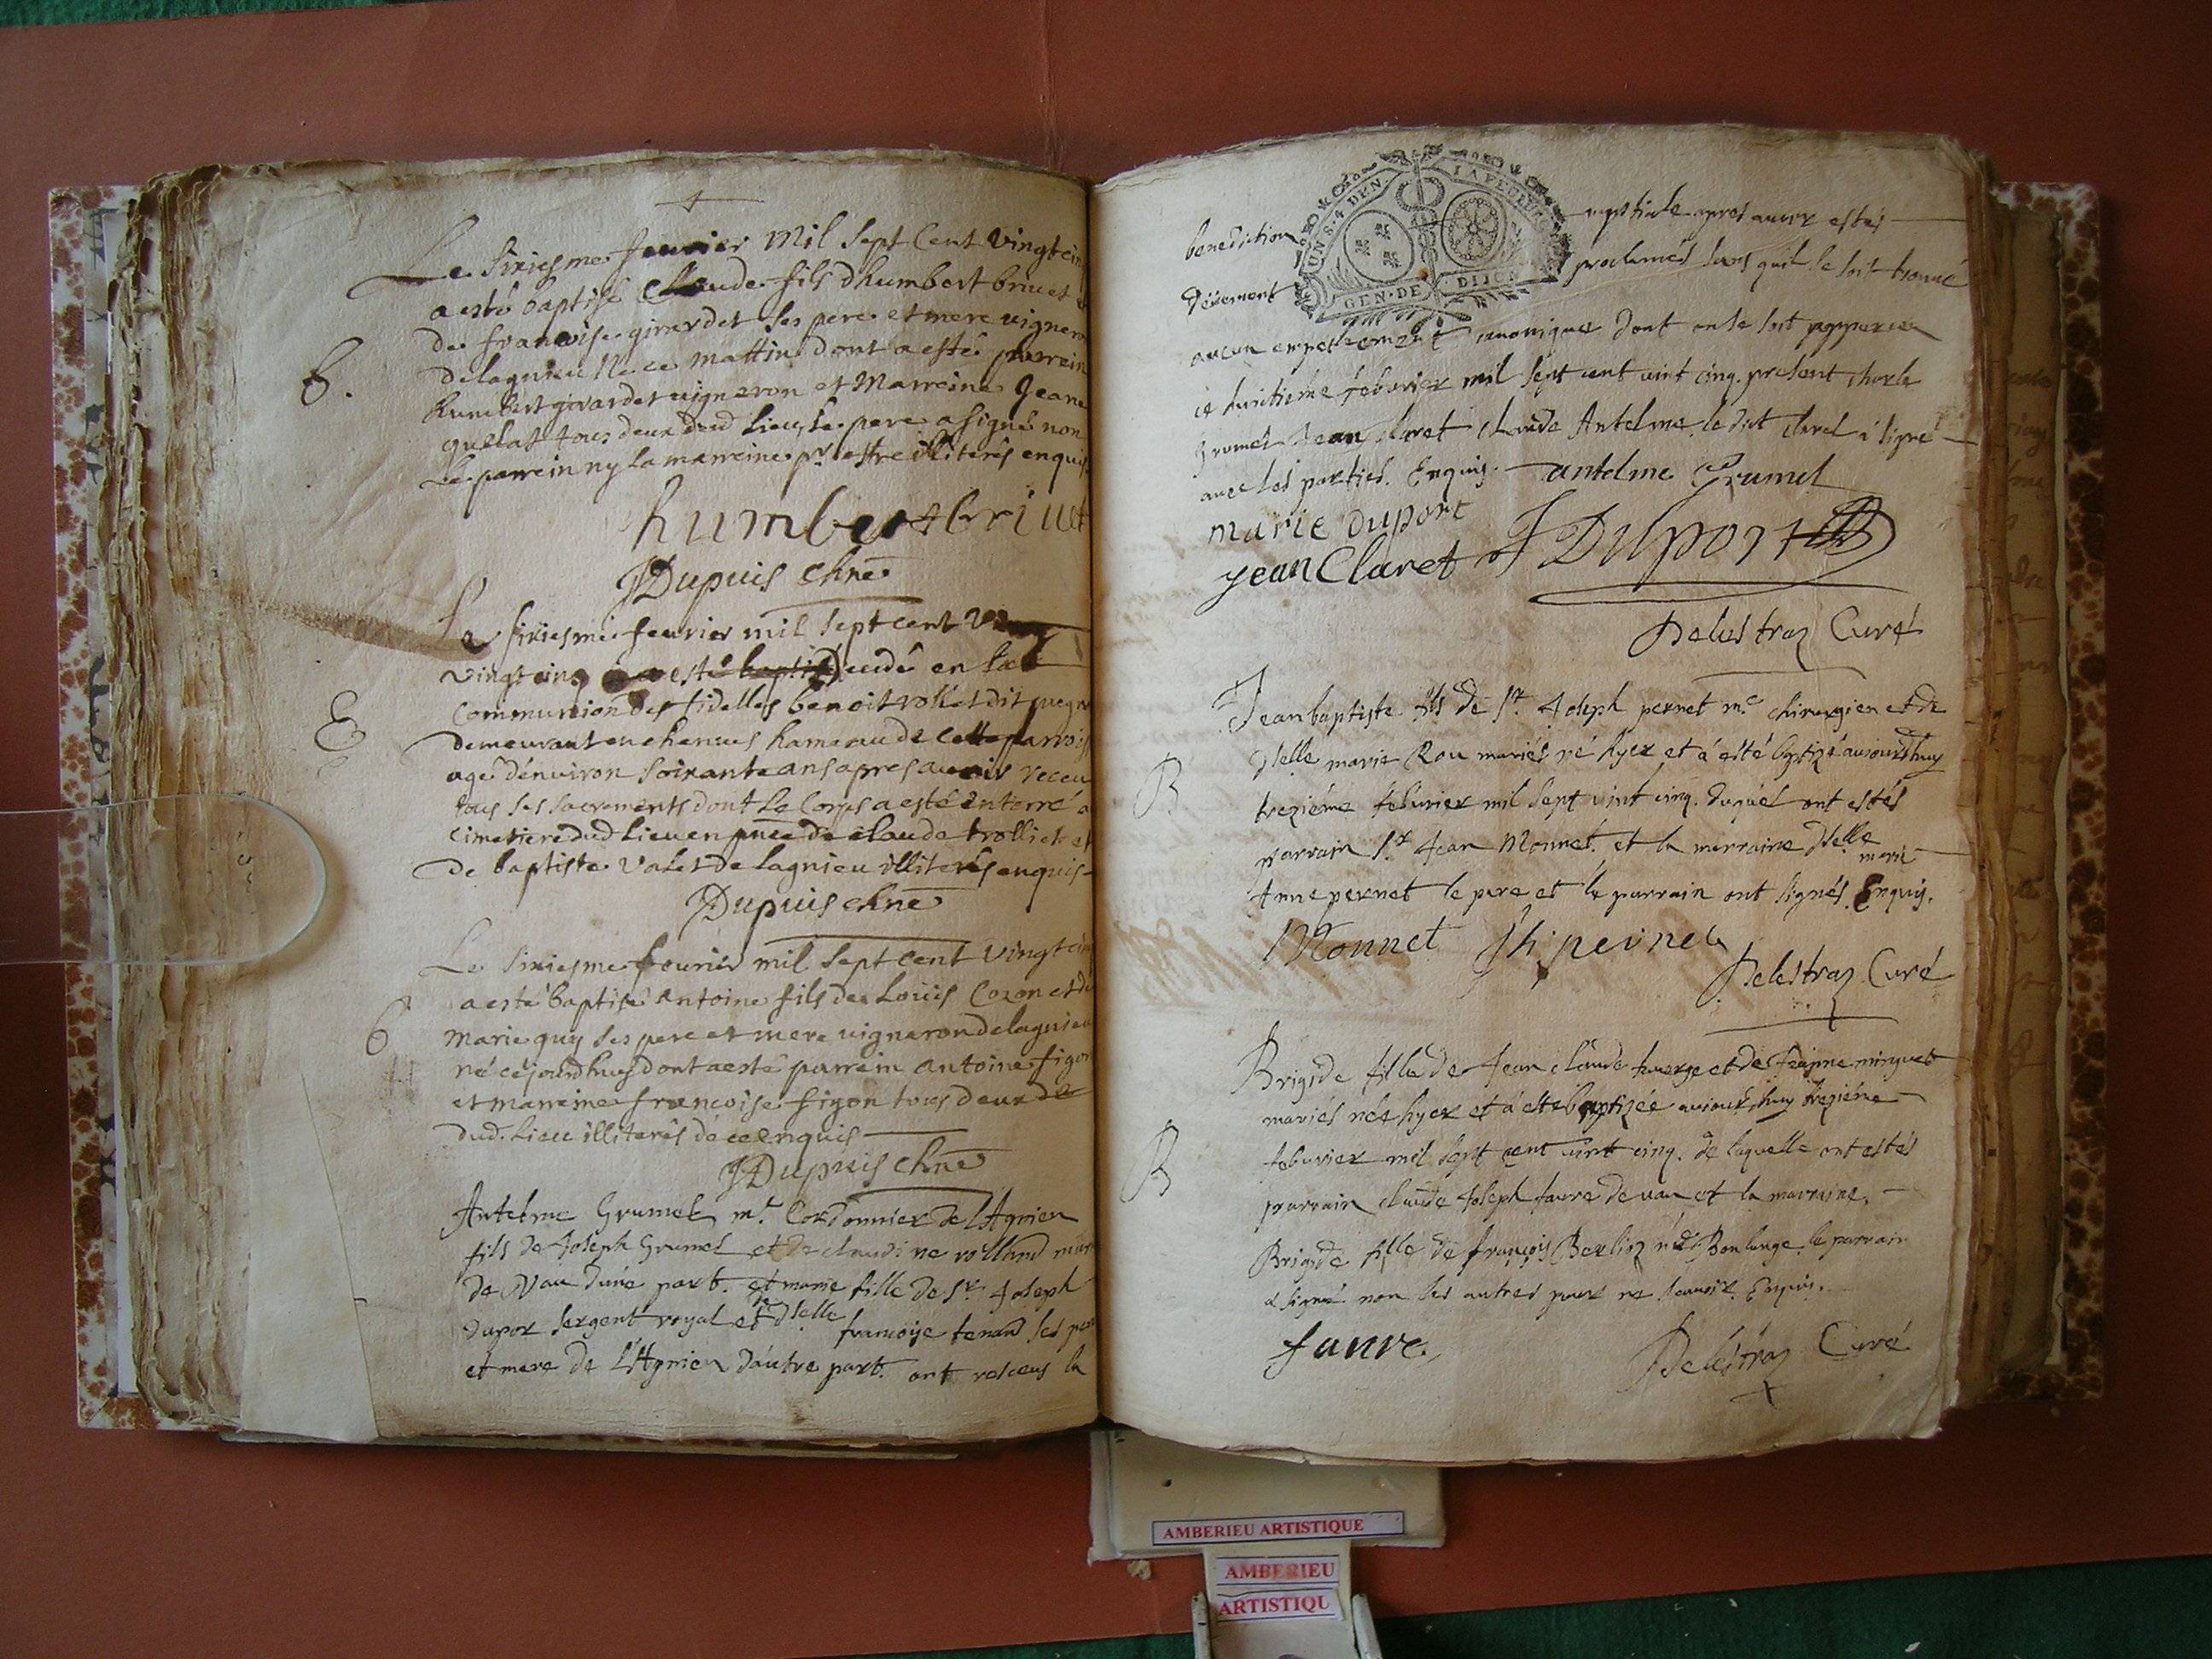 Le sixiesme feuvier mil sept Cent vingtcin
a esté baptisé Claude fils dhumbert briuet
de francoise girardet ses pere et mere vigneron
delagnieu ne ce mattin dont a esté parrein
humbert girardet vigneron et Marreine Jeane
B.
quelat tous deux dud lieu, le pere a signé non
le parrein ny la marreine pr estre illiterés enquis
humbert briuet
JDupuis chne
Le sixiesme feuvier mil sept cent
vingtcinq a esté baptisé decedé en la
Communion des fidelles benoit rollet dit
E
demeurant en chenues hameau de cette parrois
agé dénuiron soixante ans apres auoir receu
tous ses sacrements dont le Corps a esté enterré a
cimetiere dud lieu en pnce de claude trolliet et
de baptiste valet de lagnieu illiterés enquis
JDupuis chne
Le sixiesme feurier mil sept cent vingtcin
a esté baptisé antoine fils de Loüis Cozon et de
marie guy ses pere et mere vigneron delagnieu
6
né céjourdhuy dont a esté parrein antoine figon
et marreine francoise figon tous deux de
dud. lieu illiterés de ce enquis
JDupuis chne
Antelme Grumel mr. Cordonnier de l'Agnieu
fils de Joseph Grumel et de claudine rolland
de Vau d'une part. et marie fille de Sr. Joseph
dupor sergent royal et de dselle francoise tenand ses pere
et mere de l'Agnieu d'autre part. ont receus la
UN S. 4 DEN. LA FEUILLE
GEN. DE DIJON
benediction nuptiale apres auoir estés
düement proclamés sans quil se soit trouué
aucun empechement canonique dont on se soit apperceu
ce huitieme febvrier mil sept cent vint cinq. present charle
grumel Jean claret claude Antelme le dit claret a signé
auec les parties. Enquis. antelme Grumel
marie duport
jean Claret J DUport
Delestraz Curé
Jean baptiste fils de Sr. Joseph pernet me. chirurgien et de
dselle marie Rou mariés né hyer et a esté baptizé aujourdhuy
B
trezieme febvrier mil sept vint cinq. duquel ont estés
parrain Sr. Jean Monnet. et la marraine dselle marie
Anne pernet le pere et le parrain ont signés. Enquis.
Monnet Jh pernet
Delestraz Curé
Brigide fille de Jean claude et de Jeanne minguet
mariés née hyer et a esté baptizée aujourdhuy trezieme
B
febvrier mil sept cent vint cinq. de laquelle ont estés
parrain claude Joseph faure de vau et la marraine.
Brigide fille de françois Berlioz le parrain
a signé non les autres pour ne scauoir. Enquis.
faure.
Delestraz Curé
AMBERIEU ARTISTIQUE
AMBERIEU
ARTISTIQU